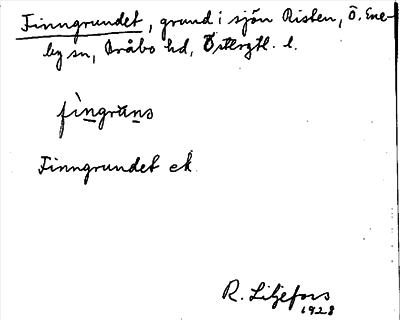 Finngrundet, grund i sjön Risten, Ö. Ene-
by sn, Bråbo hd, Östergtl. l.
fìngräns
Finngrundet ek.
R. Liljefors
1928